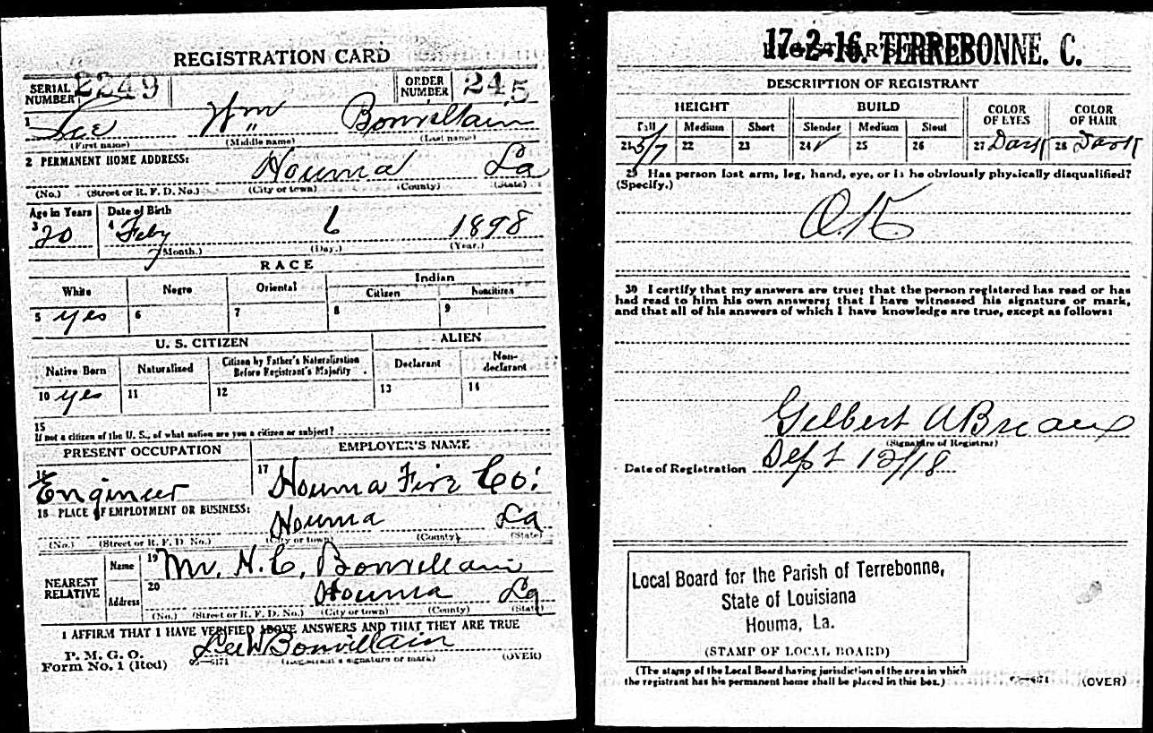 REGISTRATION CARD
SERIAL NUMBER 2249 ORDER NUMBER 245
1 Lee Wm Bonvillain
(First name) (Middle name) (Last name)
2 PERMANENT HOME ADDRESS:
Houma La
(No.) (Street or R. F. D. No.) (City or town) (County) (State)
Age in Years Date of Birth
3 20 4 Feby 6 1898
(Month.) (Day.) (Year.)
RACE
White Negro Oriental Indian
Citizen Noncitizen
5 yes 6 7 8 9
U. S. CITIZEN ALIEN
Native Born Naturalized Citizen by Father's Naturalization Before Registrant's Majority Declarant Non-declarant
10 yes 11 12 13 14
15
If not a citizen of the U. S., of what nation are you a citizen or subject?
PRESENT OCCUPATION EMPLOYER'S NAME
16 Engineer 17 Houma Fire Co.
18 PLACE OF EMPLOYMENT OR BUSINESS:
Houma La
(No.) (Street or R. F. D. No.) (City or town) (County) (State)
NEAREST RELATIVE
Name 19 Mr. H. C. Bonvillain
Address 20 Houma La
(No.) (Street or R. F. D. No.) (City or town) (County) (State)
I AFFIRM THAT I HAVE VERIFIED ABOVE ANSWERS AND THAT THEY ARE TRUE
P. M. G. O.
Form No. 1 (Red) Lee W Bonvillain
(Registrant's signature or mark) (OVER)
17-2-16. TERREBONNE. C.
DESCRIPTION OF REGISTRANT
HEIGHT BUILD COLOR OF EYES COLOR OF HAIR
Tall Medium Short Slender Medium Stout
21 5/7 22 23 24 ✓ 25 26 27 Dark 28 Dark
29 Has person lost arm, leg, hand, eye, or is he obviously physically disqualified?
(Specify.)
OK
30 I certify that my answers are true; that the person registered has read or has
had read to him his own answers; that I have witnessed his signature or mark,
and that all of his answers of which I have knowledge are true, except as follows:
Gilbert A Breaux
(Signature of Registrar)
Date of Registration Sept 12/18
Local Board for the Parish of Terrebonne,
State of Louisiana
Houma, La.
(STAMP OF LOCAL BOARD)
(The stamp of the Local Board having jurisdiction of the area in which
the registrant has his permanent home shall be placed in this box.)
(OVER)